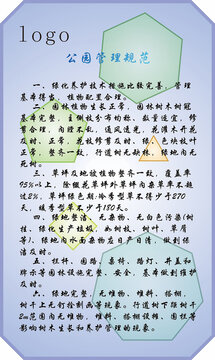 logo
公园管理规范
一、绿化养护技术措施比较完善，管理
基本得当，植物配置合理。
二、园林植物生长正常，园林树木树冠
基本完整，主侧枝分布均称、数量适宜、修
剪合理，内膛不乱，通风透光，花灌木开花
及时、正常，花后修剪及时，色块枝叶
正常，整齐一致，行道树无缺株，绿地内无
死树。
三、草坪及地被植物整齐一致，覆盖率
95%以上，除缀花草坪外草坪内杂草率不超过
2%，草坪绿色期:冷季型草不得少于270
天，暖季型草不少于180天。
四、绿地整洁，无杂物、无白色污染(树
挂)，绿化生产垃圾(如树枝、树叶、草屑
等)，绿地内水面杂物应日产日清，做到保
洁及时。
五、栏杆、园路、桌椅、路灯、井盖和
牌示等园林设施完整、安全，基本做到维护
及时。
六、绿地完整，无堆物、堆料、搭棚，
树干上无钉拴刻画等现象。行道树下距树干
2m范围内无堆物、堆料、搭棚设摊、圈栏等
影响树木生长和养护管理的现象。